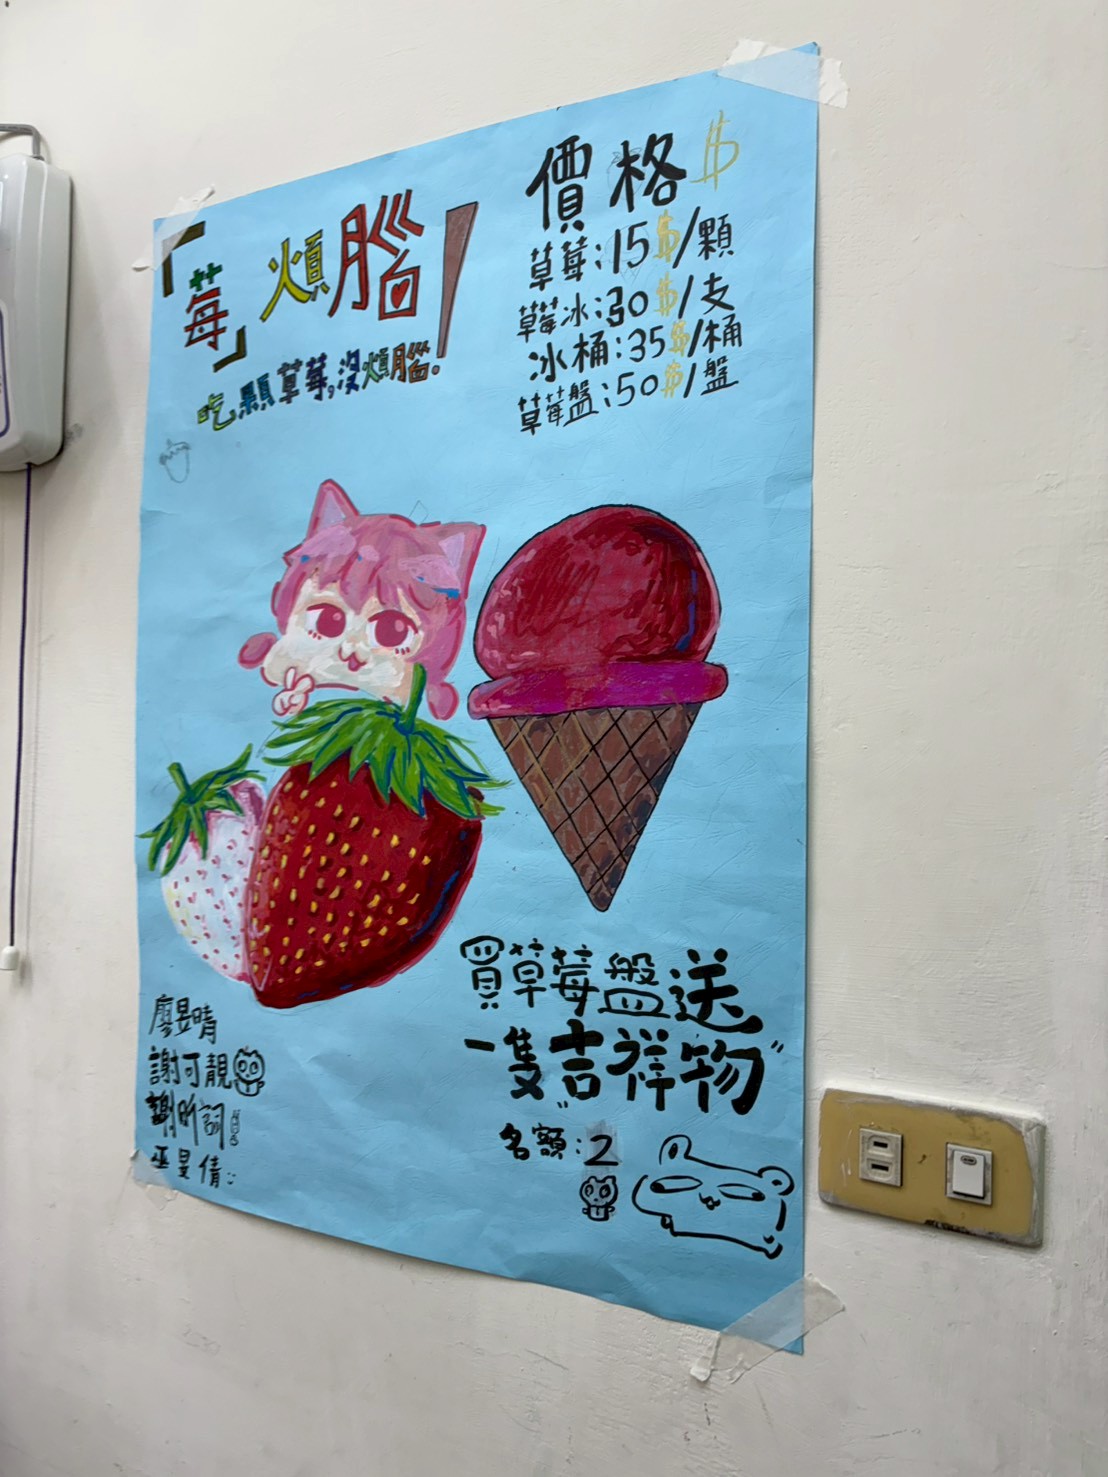 「莓」煩腦!
吃顆草莓,沒煩腦!
價格$
草莓:15$/顆
草莓冰:30$/支
冰桶:35$/桶
草莓盤:50$/盤
買草莓盤送
一隻"吉祥物"
名額:2
廖昱晴
謝可靚
謝昕詞
巫旻倩